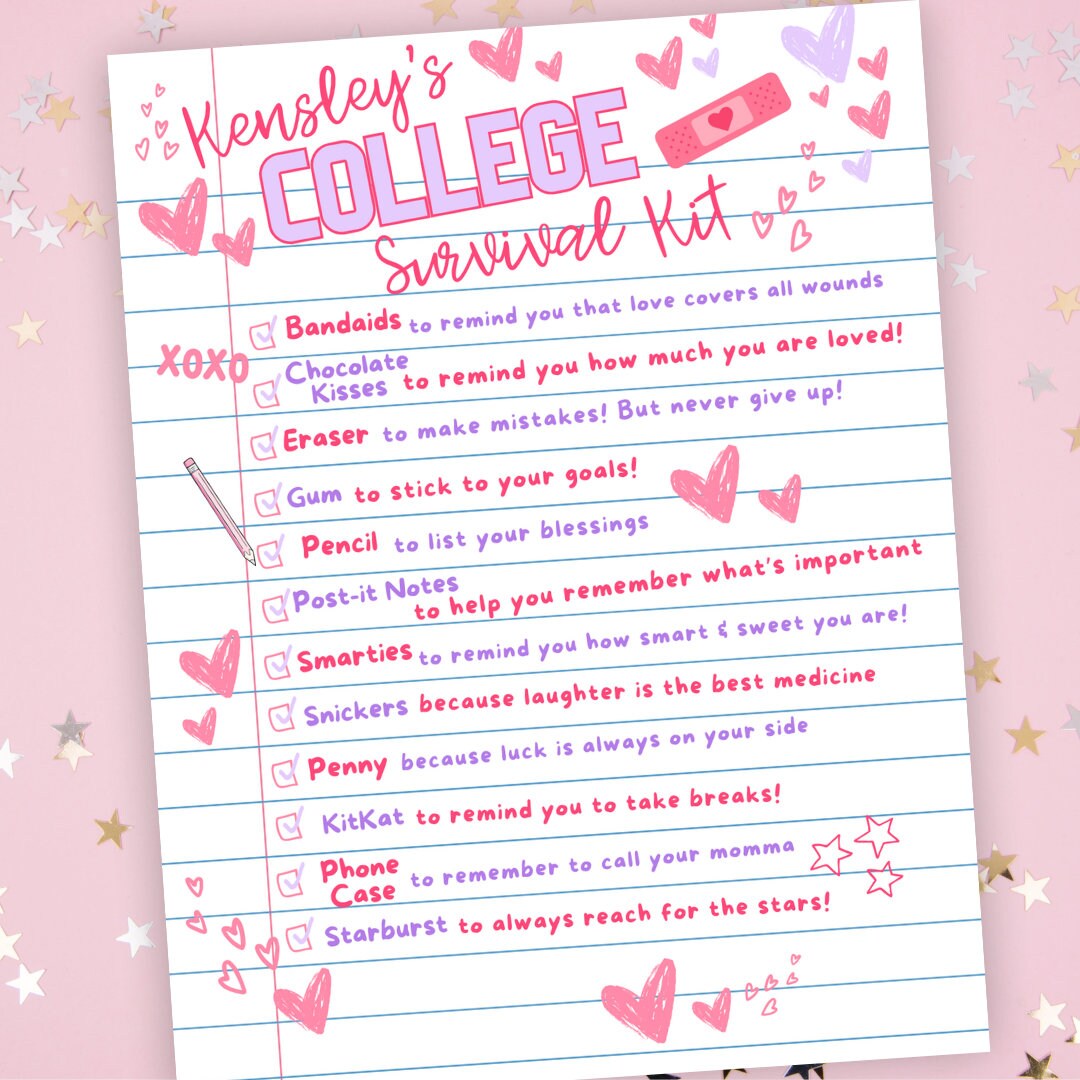 Kensley's
COLLEGE
Survival Kit
Bandaids to remind you that love covers all wounds
XOXO
Chocolate
Kisses to remind you how much you are loved!
Eraser to make mistakes! But never give up!
Gum to stick to your goals!
Pencil to list your blessings
Post-it Notes
to help you remember what's important
Smarties to remind you how smart & sweet you are!
Snickers because laughter is the best medicine
Penny because luck is always on your side
KitKat to remind you to take breaks!
Phone
Case to remember to call your momma
Starburst to always reach for the stars!